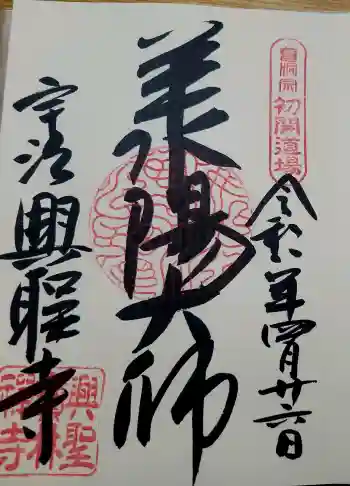 曹洞宗
初開道場
令和二年四月廿六日
承陽大師
宇治 興聖寺
興聖
寶林
禅寺